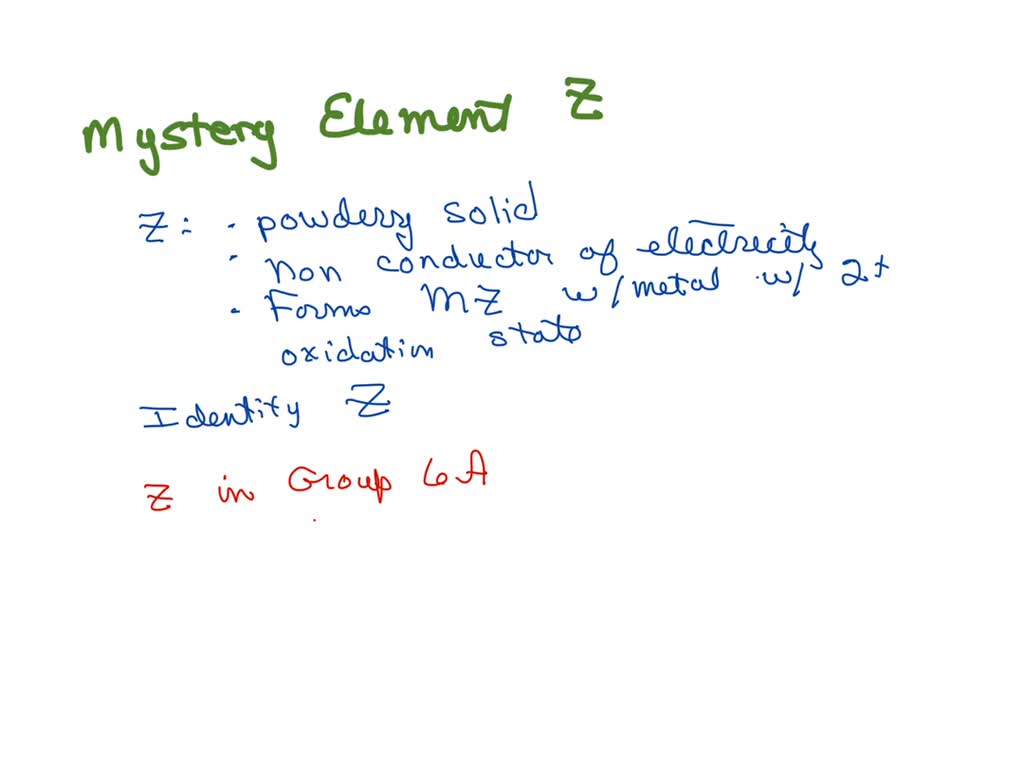 Mystery Element Z
Z: · powdery solid
· Non conductor of electricity
· Forms MZ w/ metal w/ 2+
oxidation state
Identity Z
Z in Group 6A